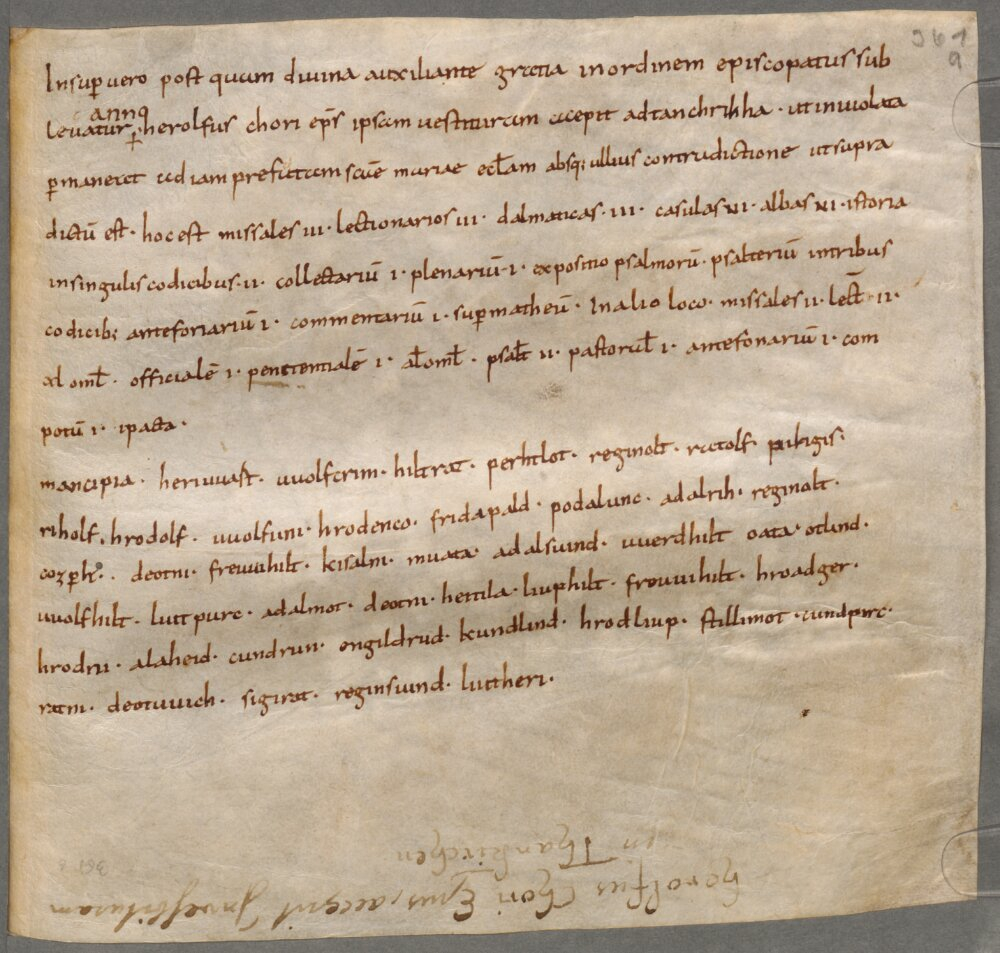 Insup uero post quam diuina auxiliante gratia inordinem episcopatus sub
anno
leuatur herolfus chori eps ipsam uestituram accepit adtanchirihha · ut inuiolata
pmaneret ad iam prefittam scae mariae ecclam absq; ullius contradictione ut supra
dictū est · hoc est missales III · lectionarios III · dalmaticas · III · casulas XI · albas XI · istoria
insingulis codicibus · II · collectariū I · plenariū · I · expositio psalmorū · psalteriū intribus
codicib; anteforiariū I · commentariū I · sup matheū · In alio loco · missales II · lect · II ·
ad oml · officialē I · penitentialē I · al oml · psalt II · pastoral I · antefonariū I · com
potū I · ipacta ·
mancipia · heriuuast · uuolfcrim · hiltrat · perhtlot · reginolt · ratolf · piligis ·
riholf · hrodolf · uuolfuni · hrodenco · fridapald · podalunc · adalrih · reginolt ·
cozpht · deotni · freuuihilt · kisalni · muata · adalsuind · uuerdhilt oata · otlind ·
uuolfhilt · luttpurc · adalmot · deotni · hettila · liuphilt · frouuihilt · hroadger ·
hrodni · alaheid · cundrun · engildrud · kundlind · hrodliup · stillimot · cundpirc ·
ratni · deotuuich · sigirat · reginsuind · luttheri ·
Herolfus Chori Epus, accepit Investituram
in Thankirchen
361
a